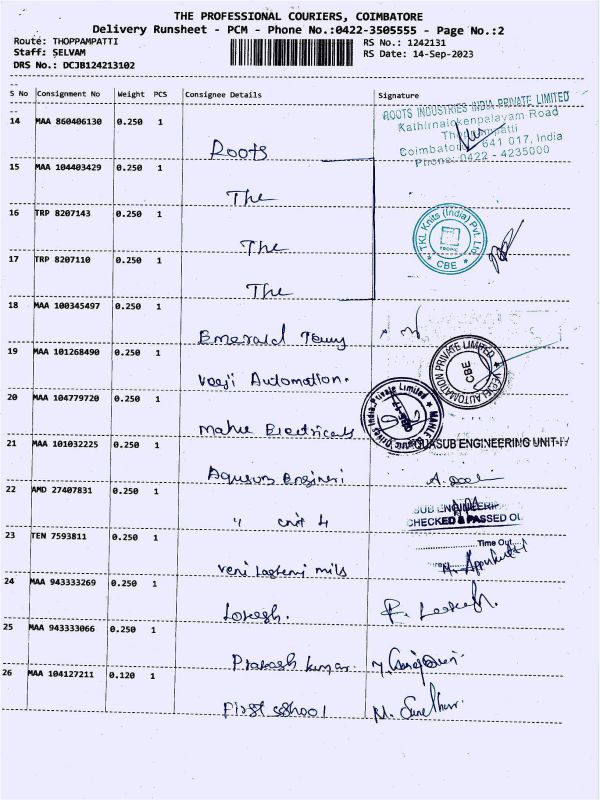 THE PROFESSIONAL COURIERS, COIMBATORE
Delivery Runsheet - PCM - Phone No.:0422-3505555 - Page No.:2
Route: THOPPAMPATTI
Staff: SELVAM
DRS No.: DCJB124213102
RS No.: 1242131
RS Date: 14-Sep-2023
S No Consignment No Weight PCS Consignee Details Signature
14 MAA 860406130 0.250 1
Roots
ROOTS INDUSTRIES INDIA PRIVATE LIMITED
Kathirnaickenpalayam Road
Coimbatore 641 017, India
Phone: 0422 - 4235000
15 MAA 104403429 0.250 1
The
16 TRP 8207143 0.250 1
The
TKL Knits (India) Pvt. Ltd
CBE
17 TRP 8207110 0.250 1
The
18 MAA 100345497 0.250 1
Emerald
19 MAA 101268490 0.250 1
Automation.
VEEJI AUTOMATION PRIVATE LIMITED
CBE
20 MAA 104779720 0.250 1
Mahle Electricals
21 MAA 101032225 0.250 1
QUASUB ENGINEERING UNIT-IV
22 AMD 27407831 0.250 1
" unit 4
CHECKED & PASSED
23 TEN 7593811 0.250 1
mills
Time Out
24 MAA 943333269 0.250 1
Lokesh.
25 MAA 943333066 0.250 1
Prakash kumar
26 MAA 104127211 0.120 1
First school